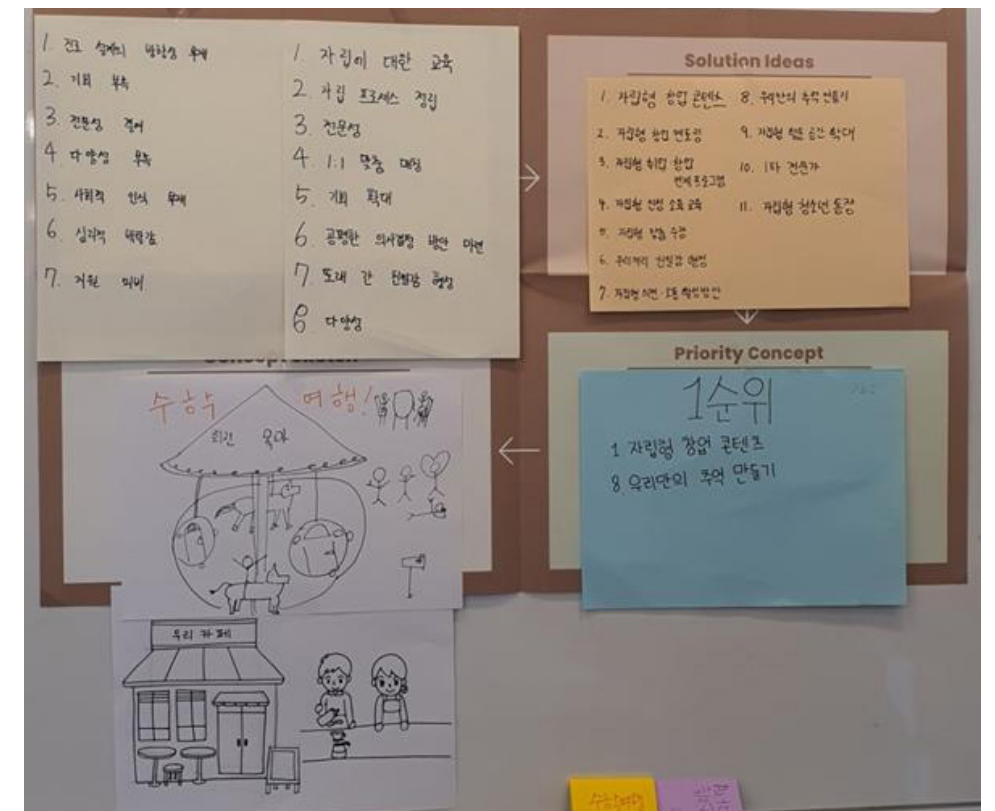 1. 진로 설계의 방향성 부재
2. 기회 부족
3. 전문성 결여
4 다양성 부족
5. 사회적 인식 부재
6. 심리적 박탈감
7. 지원 미비
1. 자립에 대한 교육
2. 자립 프로세스 정립
3. 전문성
4. 1:1 맞춤 매칭
5. 기회 확대
6. 공평한 의사결정 방안 마련
7. 또래 간 친밀감 형성
8 다양성
Solution Ideas
1. 자립형 창업 콘텐츠
2. 자립형 창업 멘토링
3. 자립형 취업 창업
연계 프로그램
4. 자립형 진정 소통 교육
5. 자립형 맞춤 수당
6. 우리끼리 친밀감 형성
7. 자립형 의견·소통
8. 우리만의 추억 만들기
9. 자립형 창업 공간 확대
10. 1타 전문가
11. 자립형 청소년 통장
Concept Sketch
수학 여행!
회전 목마
우리 카페
Priority Concept
1순위
1 자립형 창업 콘텐츠
8. 우리만의 추억 만들기
수학여행